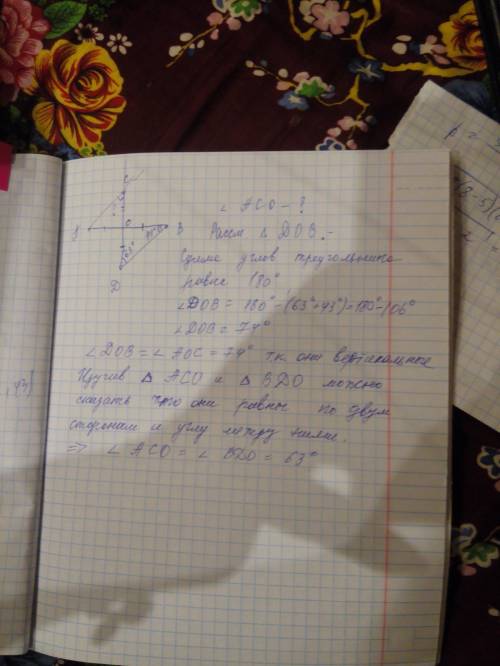 C
A
O
B
D
63°
∠ ACO - ?
Рассм Δ DOB.-
Сумма углов треугольника
равна 180°
∠DOB = 180° - (63°+43°) = 180° - 106°
∠DOB = 74°
∠DOB = ∠AOC = 74° т.к они вертикальные
Изучив Δ ACO и Δ BDO можно
сказать что они равны по двум
сторонам и углу между ними.
=> ∠ ACO = ∠ BDO = 63°